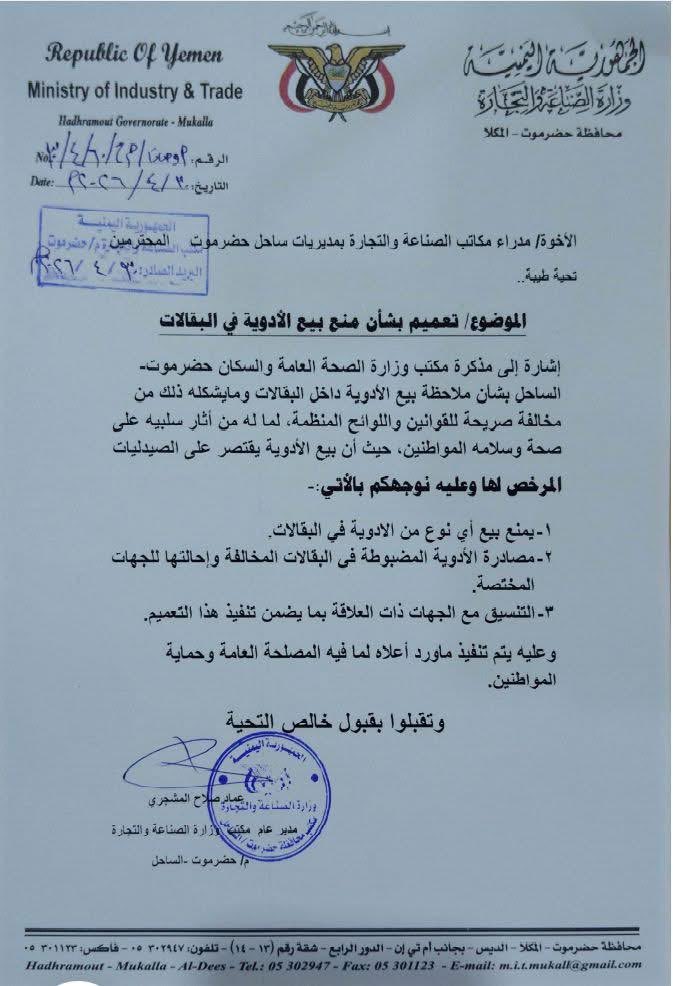 بسم الله الرحمن الرحيم
Republic Of Yemen
Ministry of Industry & Trade
Hadhramout Governorate - Mukalla
الجمهورية اليمنية
وزارة الصناعة والتجارة
محافظة حضرموت - المكلا
No: الرقم:
Date: ٢٠٢٦/٤/٣٠ التاريخ:
الجمهورية اليمنية
مكتب الصناعة والتجارة م/حضرموت
البريد الصادر: ٣٠/٤/٢٠٢٦
الأخوة/ مدراء مكاتب الصناعة والتجارة بمديريات ساحل حضرموت المحترمين
تحية طيبة..
الموضوع/ تعميم بشأن منع بيع الأدوية في البقالات
إشارة إلى مذكرة مكتب وزارة الصحة العامة والسكان حضرموت-
الساحل بشأن ملاحظة بيع الأدوية داخل البقالات ومايشكله ذلك من
مخالفة صريحة للقوانين واللوائح المنظمة، لما له من أثار سلبيه على
صحة وسلامه المواطنين، حيث أن بيع الأدوية يقتصر على الصيدليات
المرخص لها وعليه نوجهكم بالأتي:-
١-يمنع بيع أي نوع من الادوية في البقالات.
٢-مصادرة الأدوية المضبوطة في البقالات المخالفة وإحالتها للجهات
المختصة.
٣-التنسيق مع الجهات ذات العلاقة بما يضمن تنفيذ هذا التعميم.
وعليه يتم تنفيذ ماورد أعلاه لما فيه المصلحة العامة وحماية
المواطنين.
وتقبلوا بقبول خالص التحية
عماد صلاح المشجري
مدير عام مكتب وزارة الصناعة والتجارة
م/ حضرموت -الساحل
الجمهورية اليمنية
وزارة الصناعة والتجارة
محافظة حضرموت - المكلا - الديس - بجانب أم تي إن - الدور الرابع - شقة رقم (١٣ - ١٤) - تلفون: ٣٠٢٩٤٧ ٠٥ - فاكس: ٣٠١١٢٣ ٠٥
Hadhramout - Mukalla - Al-Dees - Tel.: 05 302947 - Fax: 05 301123 - E-mail: m.i.t.mukall@gmail.com